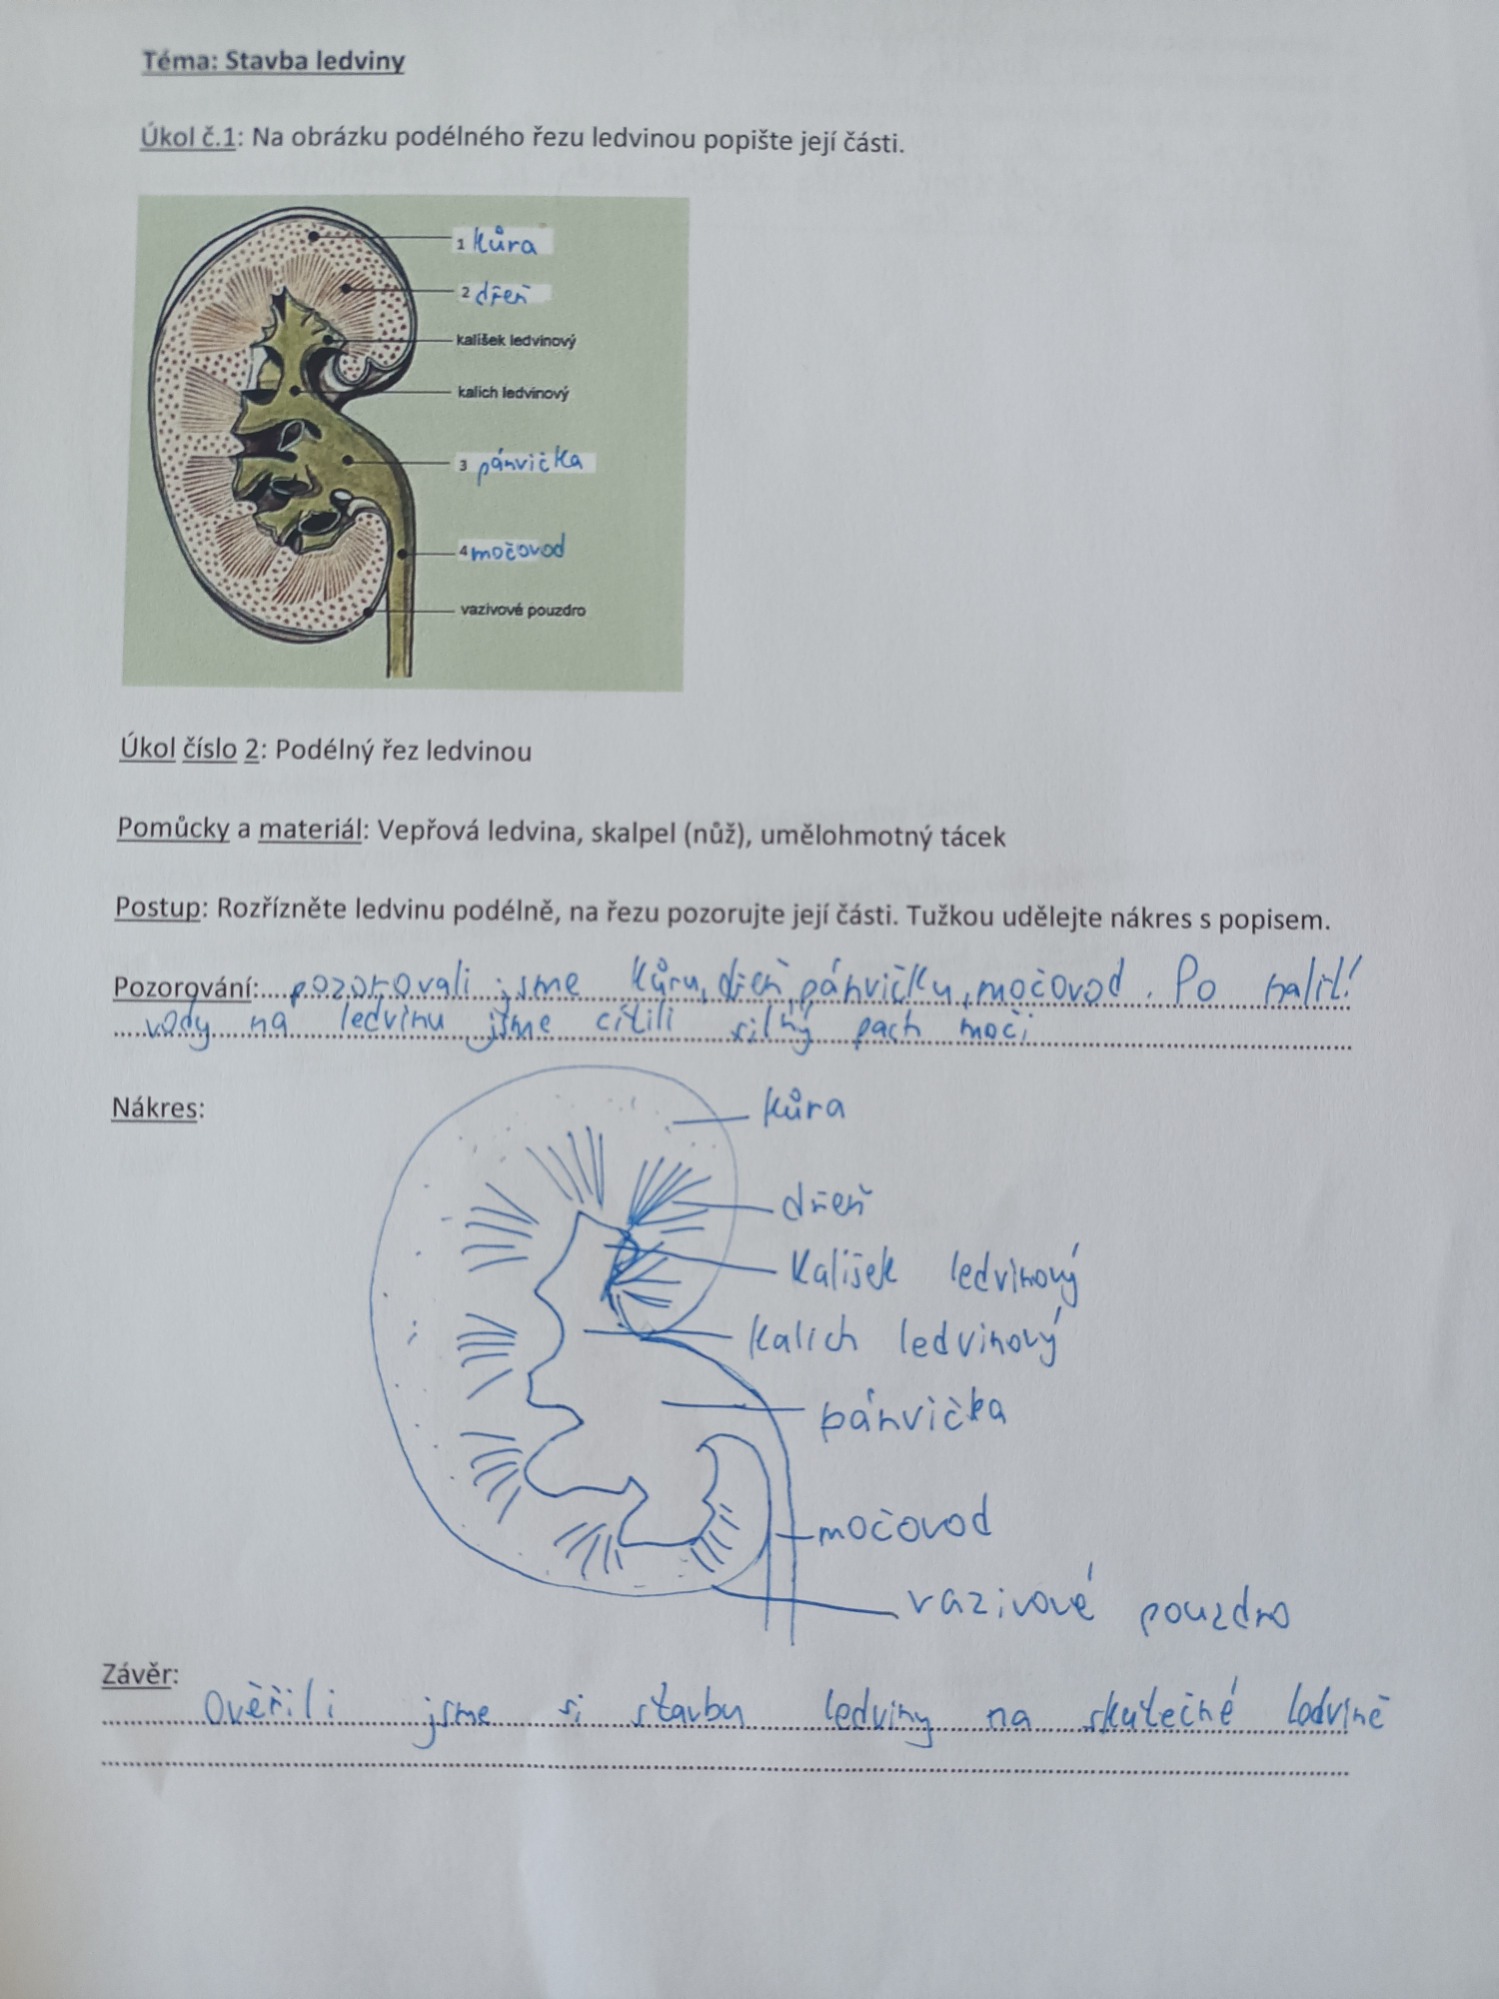 Téma: Stavba ledviny
Úkol č.1: Na obrázku podélného řezu ledvinou popište její části.
1 kůra
2 dřeň
kalíšek ledvinový
kalich ledvinový
3 pánvička
4 močovod
vazivové pouzdro
Úkol číslo 2: Podélný řez ledvinou
Pomůcky a materiál: Vepřová ledvina, skalpel (nůž), umělohmotný tácek
Postup: Rozřízněte ledvinu podélně, na řezu pozorujte její části. Tužkou udělejte nákres s popisem.
Pozorování: pozorovali jsme kůru, dřeň, pánvičku, močovod. Po
vody na ledvinu jsme cítili silný pach moči
Nákres:
kůra
dřeň
Kalíšek ledvinový
Kalich ledvinový
pánvička
močovod
vazivové pouzdro
Závěr:
Ověřili jsme si stavbu ledviny na skutečné ledvině